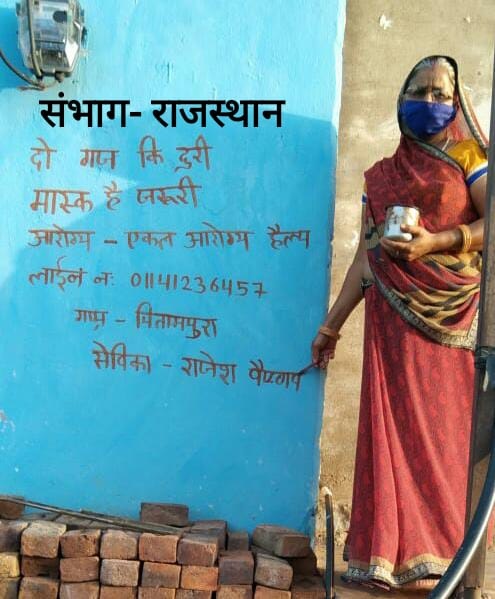 संभाग- राजस्थान
दो गज कि दुरी
मास्क है जरूरी
आरोग्य - एकल आरोग्य हैल्प
लाईन नः 01141236457
गाम - पितामपुरा
सेविका - राजेश वैष्णव